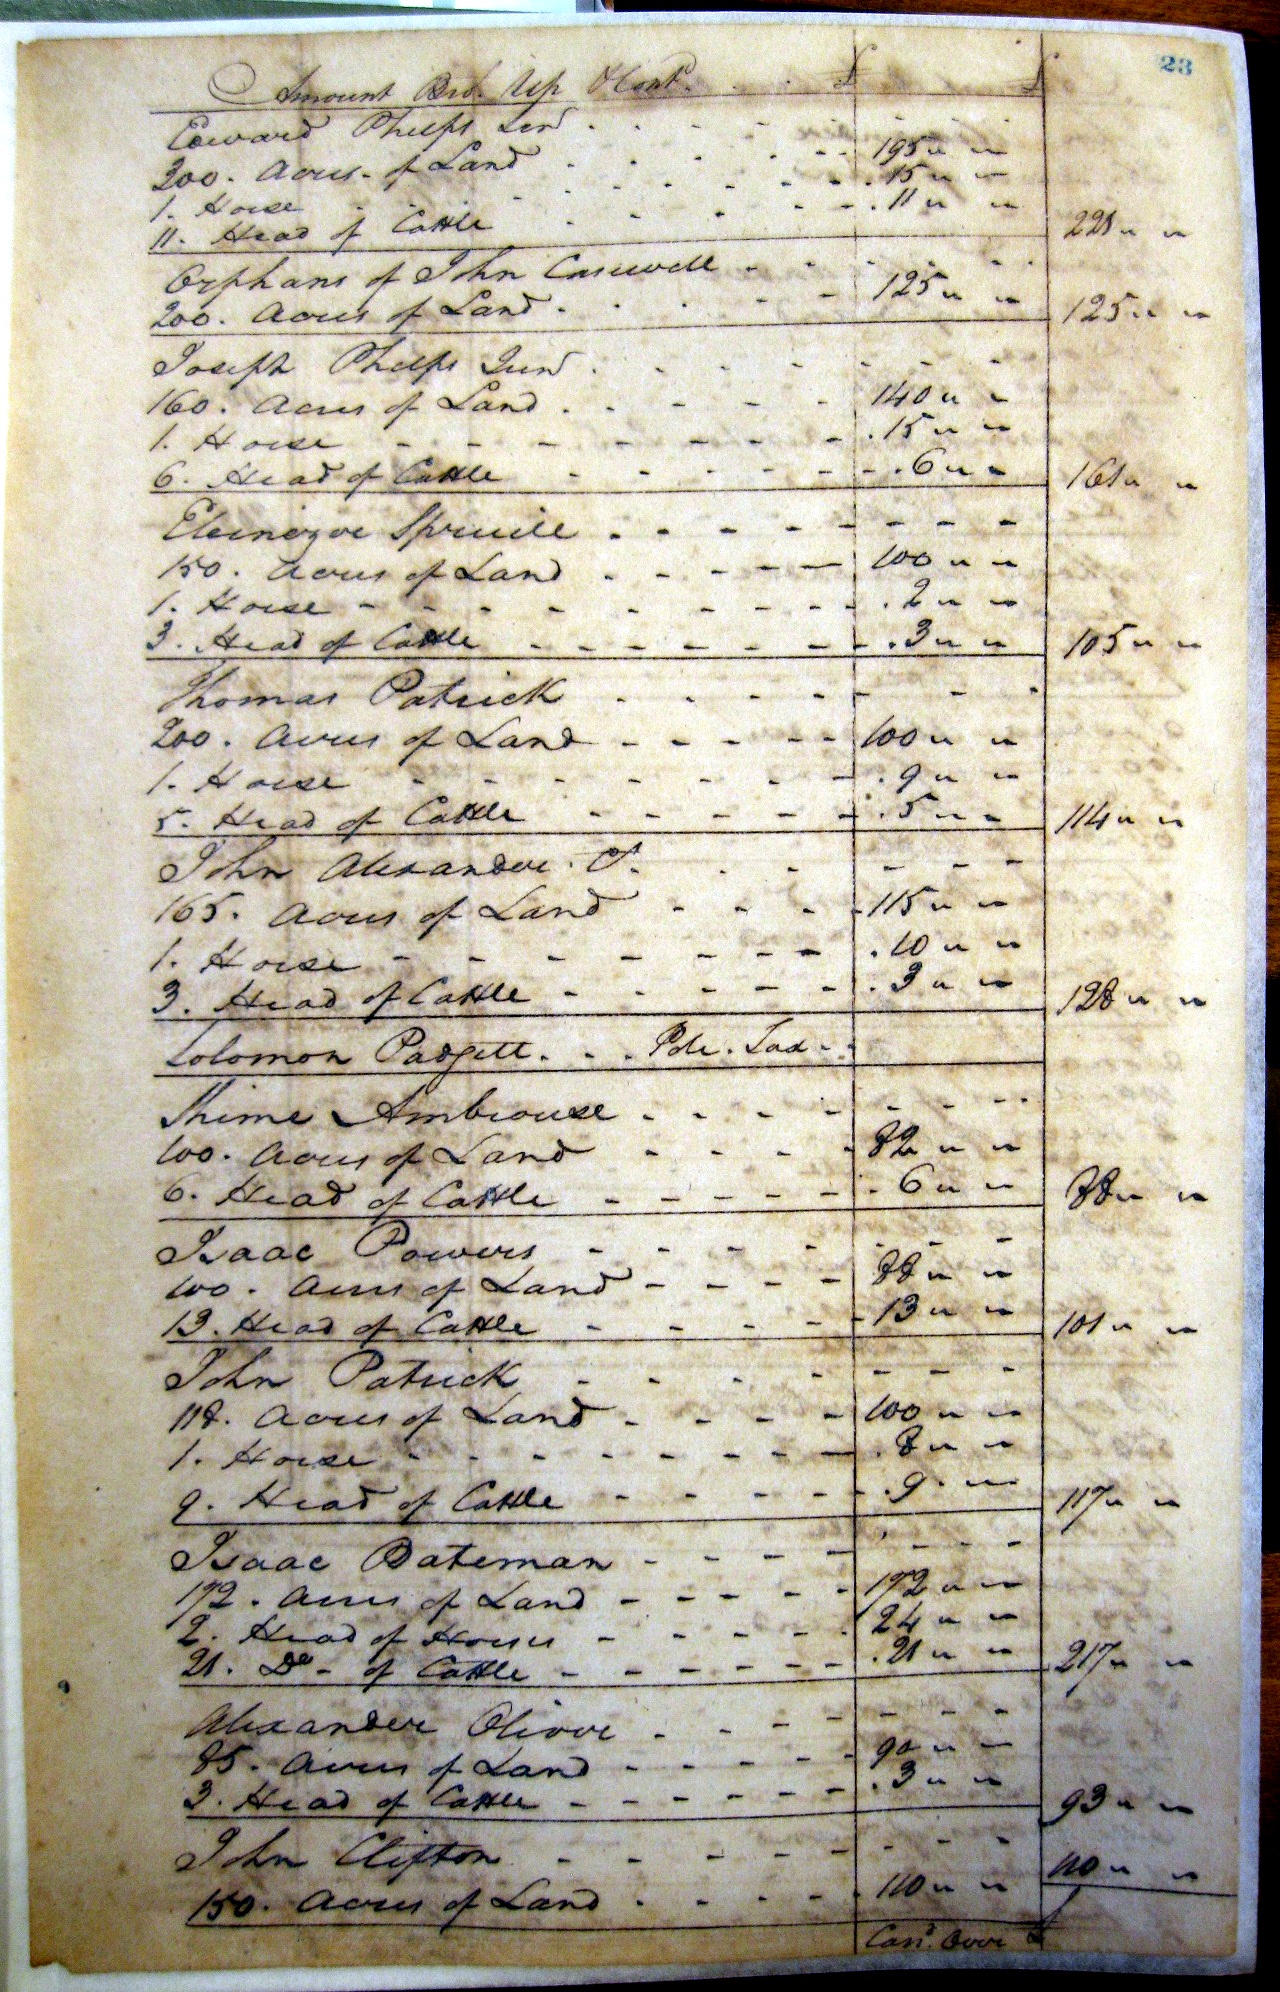 23
Amount Bro.t Up & Cont.d £ £
Edward Phelps Sen.r
300. Acres of Land 195 " "
1. Horse 15 " "
11. Head of Cattle 11 " " 221 " "
Orphans of John Caswell
200. Acres of Land 125 " " 125 " "
Joseph Phelps Jun.r
160. Acres of Land 140 " "
1. Horse 15 " "
6. Head of Cattle 6 " " 161 " "
Ebenezor Spruill
150. Acres of Land 100 " "
1. Horse 2 " "
3. Head of Cattle 3 " " 105 " "
Thomas Patrick
200. Acres of Land 100 " "
1. Horse 9 " "
5. Head of Cattle 5 " " 114 " "
John Alexander
165. Acres of Land 115 " "
1. Horse 10 " "
3. Head of Cattle 3 " " 128 " "
Solomon Padgett Pole. Tax
Shime Ambrouse
100. Acres of Land 82 " "
6. Head of Cattle 6 " " 88 " "
Isaac Powers
100. Acres of Land 88 " "
13. Head of Cattle 13 " " 101 " "
John Patrick
118. Acres of Land 100 " "
1. Horse 8 " "
9. Head of Cattle 9 " 117 " "
Isaac Bateman
172. Acres of Land 172 " "
2. Head of Horses 24 " "
21. Do of Cattle 21 " " 217 " "
Alexander Oliver
85. Acres of Land 90 " "
3. Head of Cattle 3 " " 93 " "
John Clifton
150. Acres of Land 110 " " 110 " "
Carr.d Over £